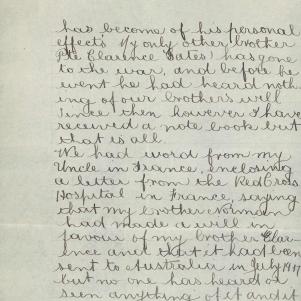 has become of his personal
effects. My only other brother
Pte Clarence Yates has gone
to the war, and before he
went he had heard noth
ing of our brother's will
Since then however I have
received a note book but
that is all.
We had word from my
Uncle in France, enclosing
a letter from the Red Cross
Hospital in France, saying
that my brother Norman
had made a will in
favour of my brother Clar-
ence and that it had been
sent to Australia in July 1917
but no one has heard or
seen anything of it and it